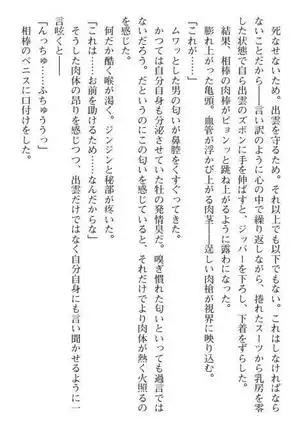 死なせないため。出雲を守るため。それ以上でも以下でもない。これはしなければなら
ないことだから――言い訳のように心の中で繰り返しながら、捲れたスーツから乳房を零
した状態で自ら出雲のズボンに手を伸ばすと、ジッパーを下ろし、下着をずらした。
結果、相棒の肉棒がビョンッと跳ね上がるように露わになった。
「これが……」
膨れ上がる亀頭。血管が浮かび上がる肉茎――逞しい肉槍が視界に映り込む。
ムワッとした男の匂いが鼻腔をくすぐってきた。
かつては自分自身も分泌させていた牡の発情臭。嗅ぎ慣れた匂いといっても過言では
ないだろう。だというのにこの匂いを感じていると、それだけでより肉体が熱く火照るの
だった。
何だか酷く喉が渇く。ジンジンと秘部が疼いた。
「これは……お前を助けるため……なんだからな」
そうした肉体の昂りを感じつつ、出雲だけではなく自分自身にも言い聞かせるように一
言呟くと――
「んっちゅ……ふちゅううっ」
相棒のペニスに口付けをした。